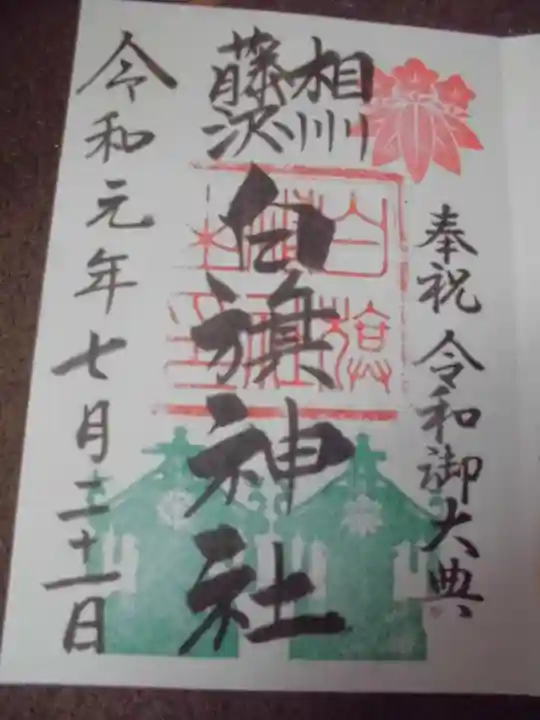 奉祝 令和御大典
相州
藤沢
白旗神社
令和元年七月三十一日